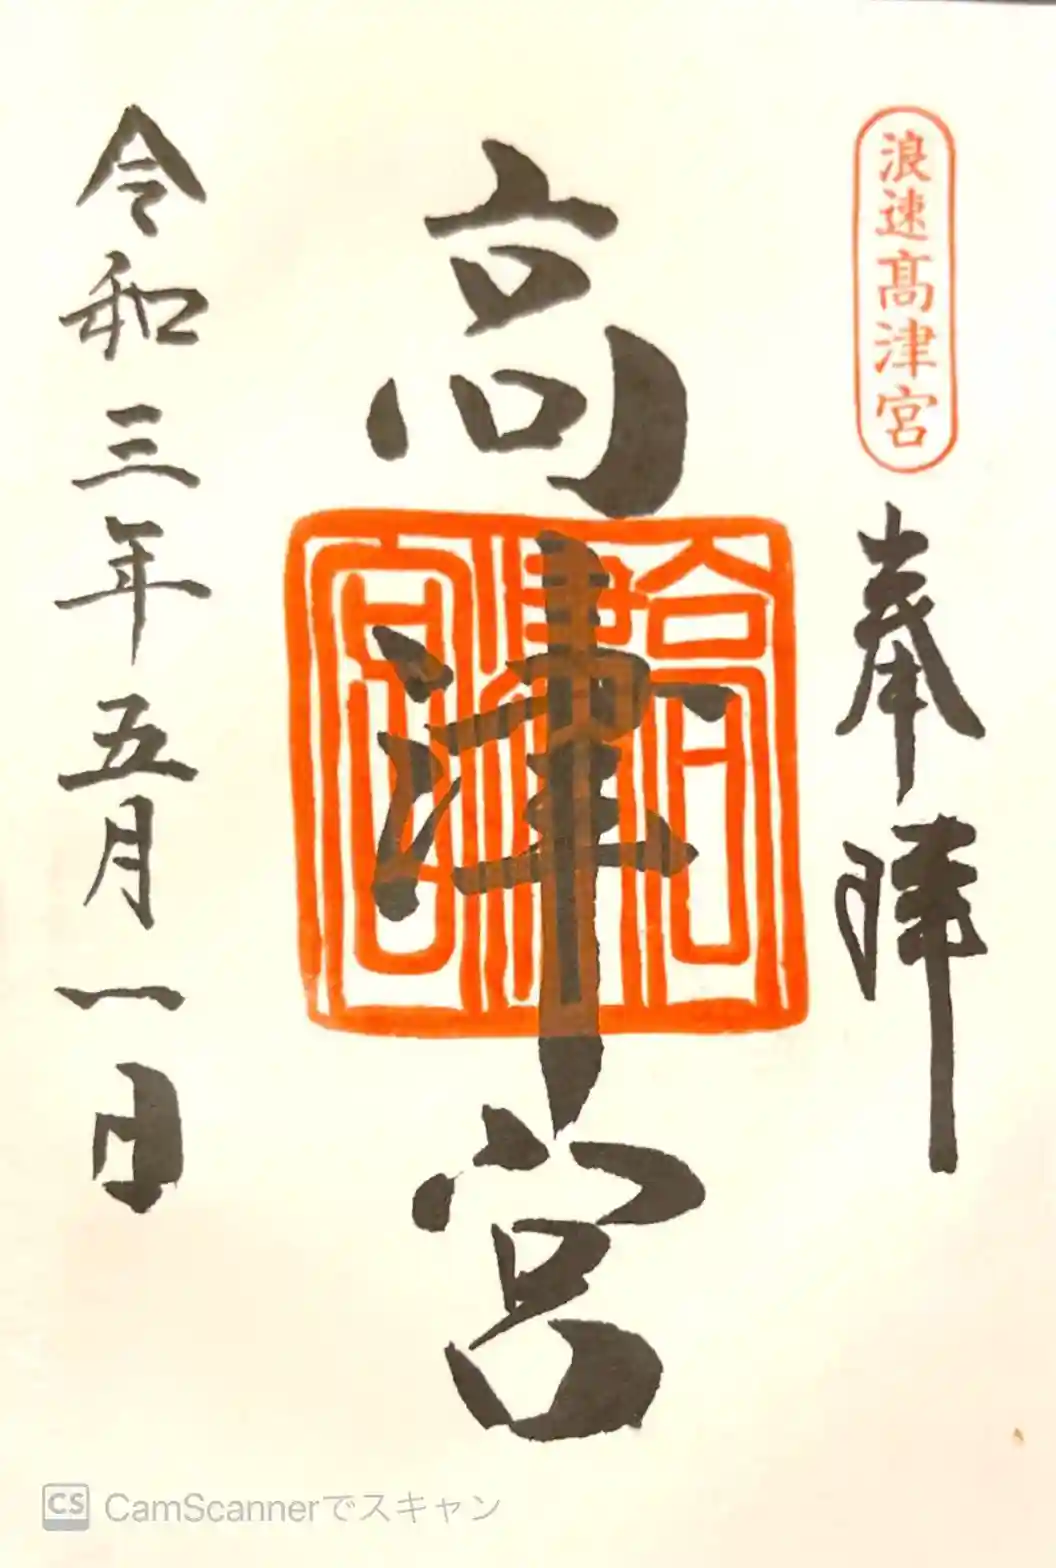 浪速髙津宮
奉拝
高津宮
高津宮
令和三年五月一日
CS CamScannerでスキャン